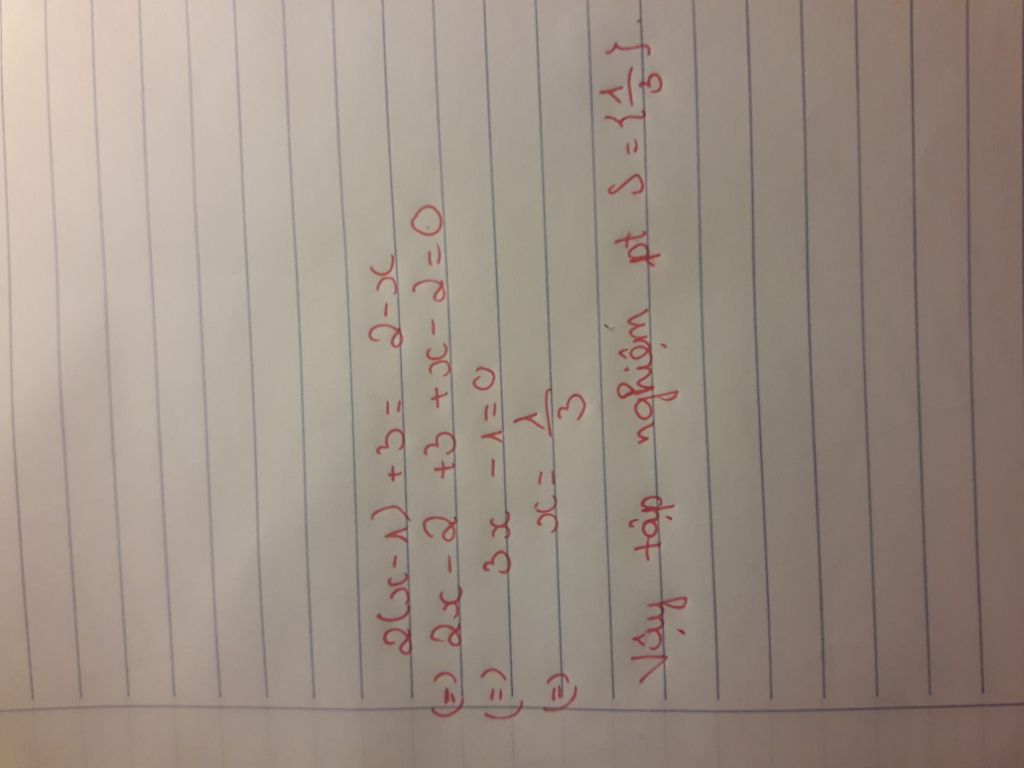 2(x-1) +3 = 2-x
(=) 2x - 2 +3 +x - 2 = 0
(=) 3x - 1 = 0
(=) x = 1/3
Vậy tập nghiệm pt S = {1/3}.